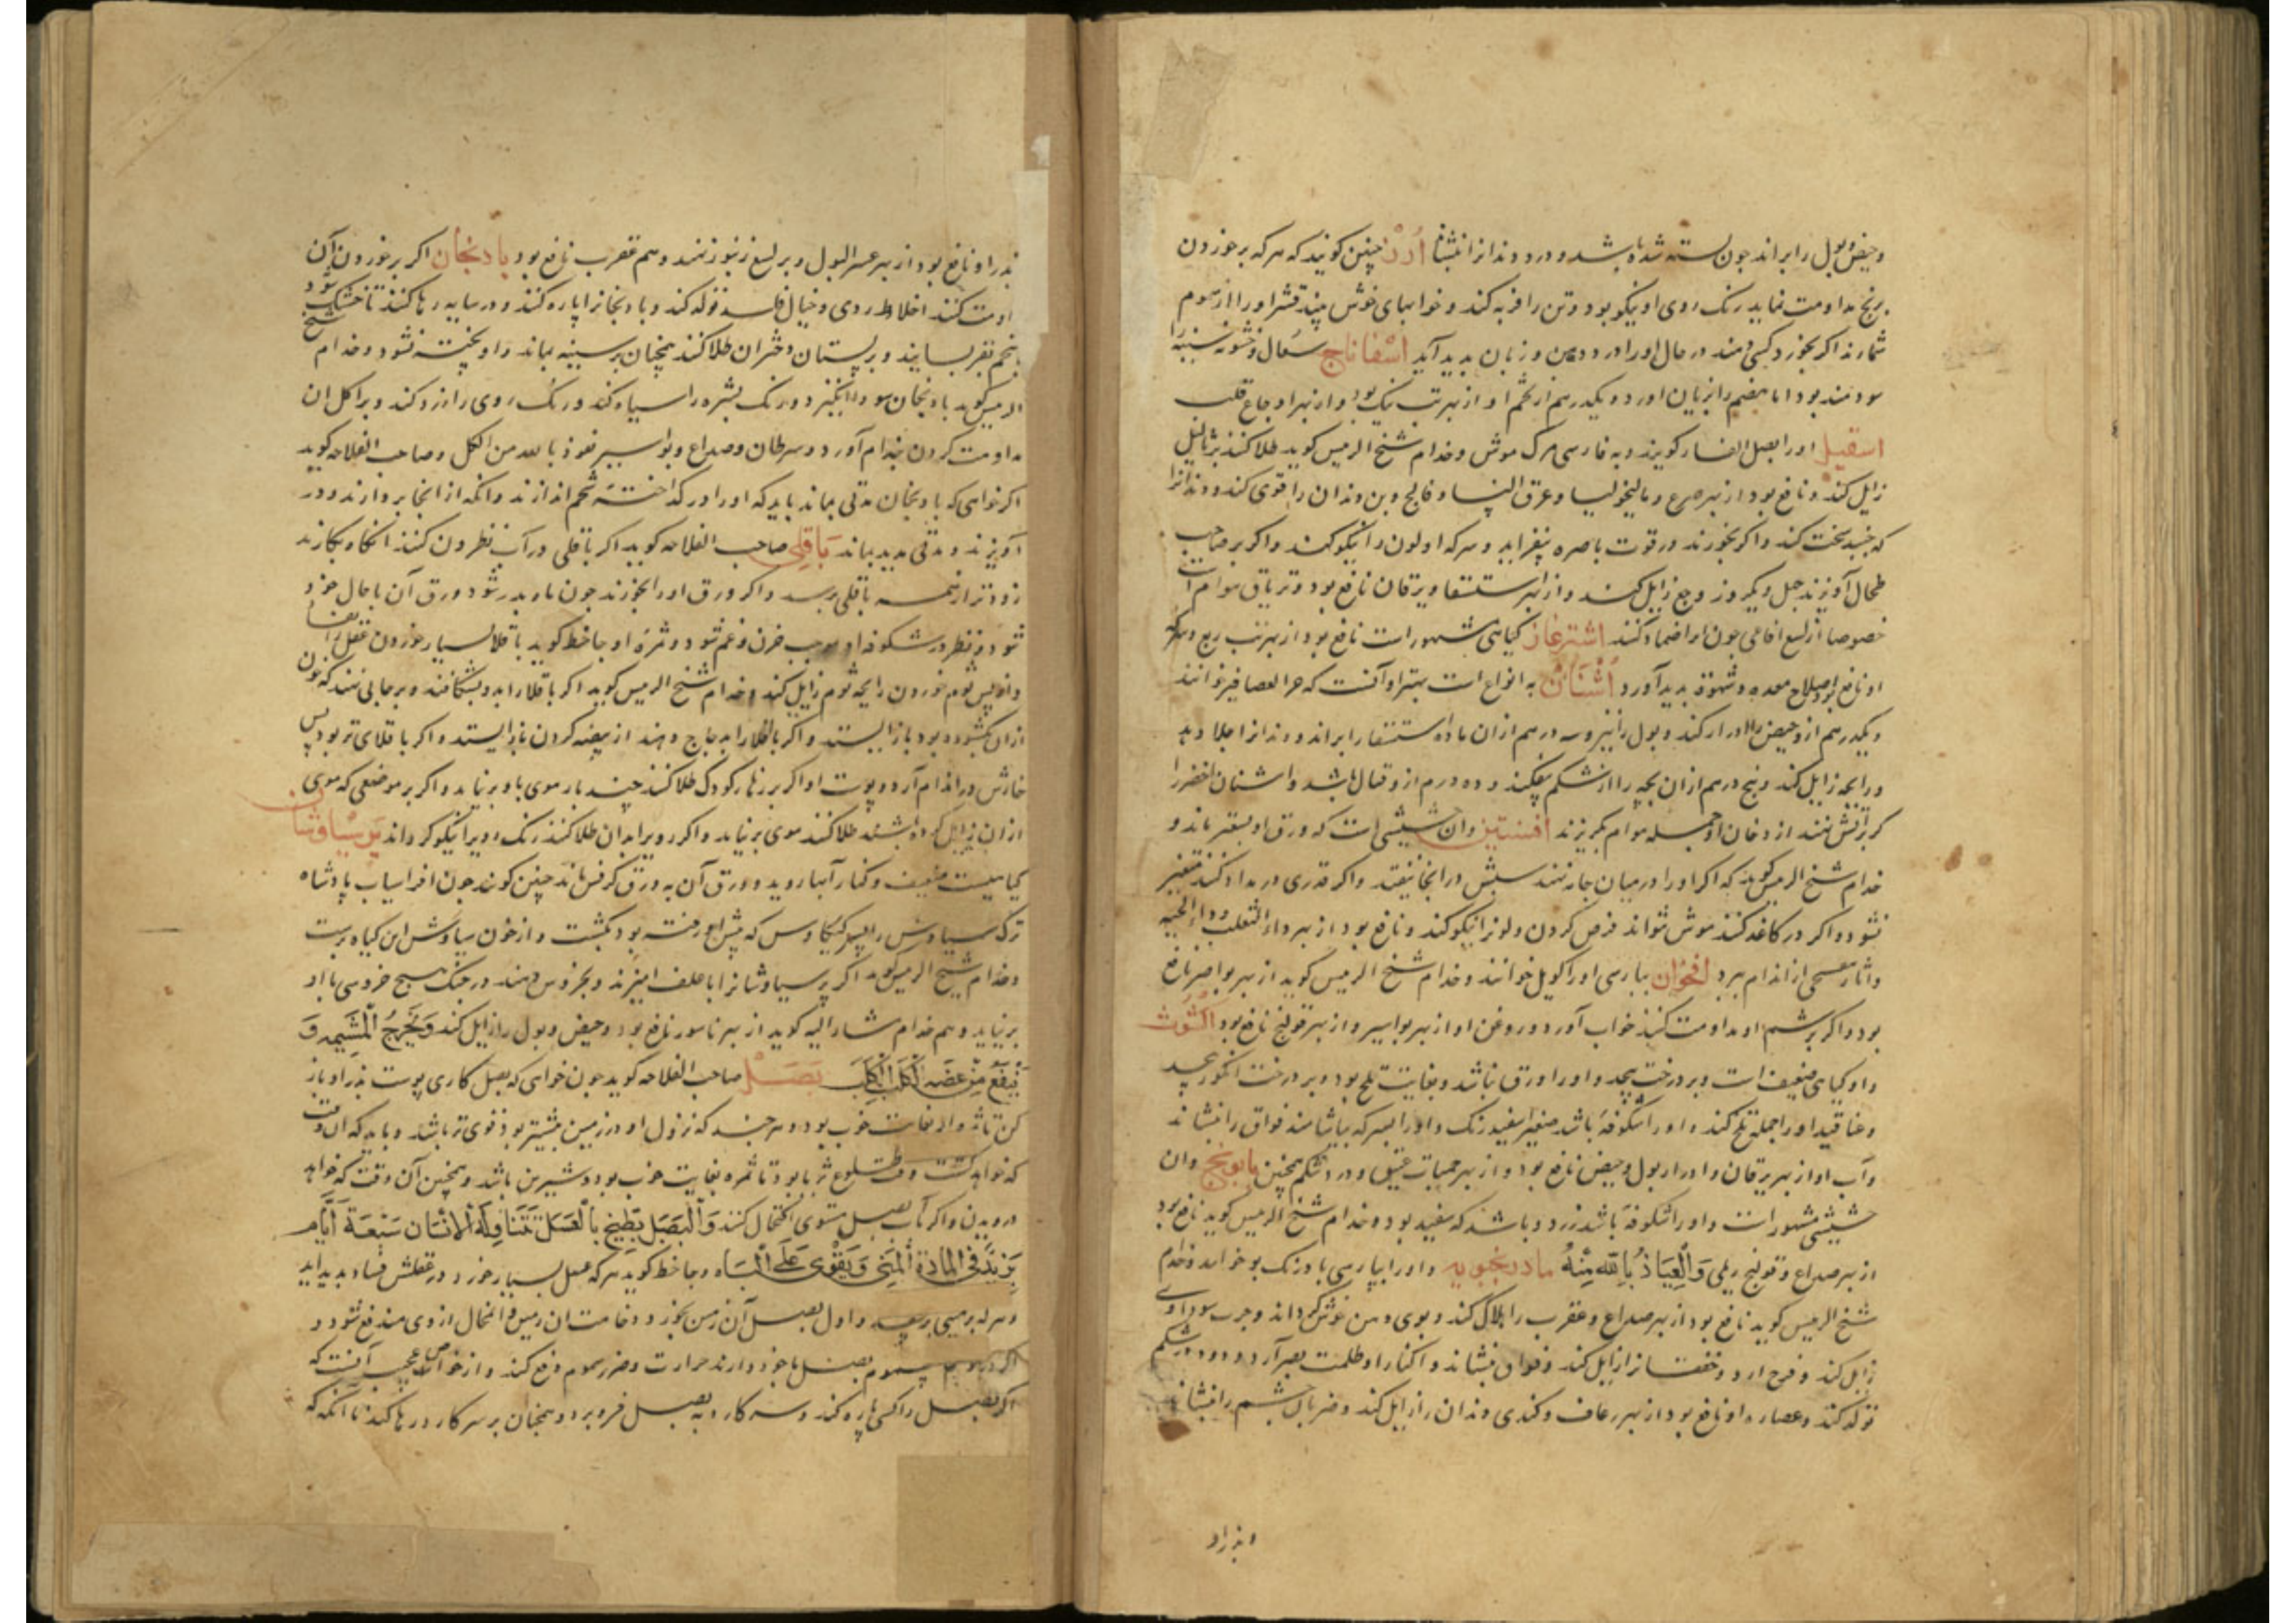 وحیض و بول را براند چون بسته شده باشد و درد دندانرا بنشاند اَرُزّ چنین کویند که هرکه بر خوردن
برنج مداومت نماید رنک روی او نیکو بود و تن را فربه کند و خوابهای خوش بیند قشر او را از سموم
شمارند اکر بخورد کسی دهند در حال او را درد دهن و زبان پدید آید اسفاناج سعال و خشونه سینه را
سودمند بود اما هضم را زیان آورد و یکدرهم از تخم او از بهر تب نیک بود و از بهر اوجاع قلب
اسقیل او را بصل الفار کویند و به فارسی مرک موش و خدام شیخ الرئیس کوید طلا کنند بر ثالیل
زایل کند و نافع بود از بهر صرع و مالیخولیا و عرق النسا و فالج و بن دندان را قوی کند و دندانرا
که جنبد سخت کند و اکر بخورند در قوت باصره بیفزاید و سرکه او لون را نیکو کند و اکر بر صاحب
طحال آویزند چهل و یکروز وجع زایل کند و از بهر استسقا و یرقان نافع بود و تریاق هوام است
خصوصا از لسع افاعی چون او را ضماد کنند اشترغاز کیاهی مشهور است نافع بود از بهر تب ربع و سرکه
او نافع بود اصلاح معده و شهوة پدید آورد اُشْنَانْ به انواع است بهتر او آنست که خرء العصافیر خوانند
و یکدرهم از و حیض را ادرار کند و بول را نیز و سه درهم از ان ماده استسقا را براند و دندانرا جلا دهد
ورایحه زایل کند و پنج درهم از ان بچه را از شکم بیفکند و ده درم از و قتال باشد و اشنان اخضر را
کر بر آتش نهند از دخان او جمله هوام بکریزند افسنتین و ان حشیشی است که ورق او بسعتر ماند و
خدام شیخ الرئیس کوید که اکر او را در میان جامه نهند سپش در انجا نیفتد و اکر قدری در مداد کنند متغیر
نشود و اکر در کاغد کنند موش نتواند قرض کردن و لونرا نیکو کند و نافع بود از بهر داء الثعلب و داء الحیه
واثار از اندام ببرد اقحوان بپارسی او را کوپل خوانند و خدام شیخ الرئیس کوید از بهر بواصر نافع
بود و اکر بر شم او مداومت کنند خواب آورد و روغن او از بهر بواسیر و از بهر قولنج نافع بود اکشوث
واو کیاهی ضعیف است و بر درخت پیچد و او را ورق نباشد و بغایت تلخ بود و بر درخت انکور پیچد
وعناقید او را جمله تلخ کند و او را شکوفه باشد صغیر سفید رنک و او را بسرکه بیاشامند فواق را بنشاند
وآب او از بهر یرقان و ادرار بول و حیض نافع بود و از بهر حمیات عتیق و درد شکم همچنین بابونج و ان
حشیشی مشهور است و او را شکوفه باشد زرد و باشد که سفید بود و خدام شیخ الرئیس کوید نافع بود
از بهر صداع و قولنج ریحی وَالْعِیَاذُ بِاللهِ مِنْهُ بادرنجبویه و او را بپارسی بادرنک بو خوانند و خدام
شیخ الرئیس کوید نافع بود از بهر صداع و عقرب را هلاک کند و بوی دهن خوش کرداند و جرب سوداوی
زایل کند و فرح آرد و خفقانرا زایل کند و فواق بنشاند و اکثار او ظلمت بصر آرد و دود در شکم
تولد کند و عصاره او نافع بود از بهر رعاف و کندی دندان را زایل کند و ضربان چشم را بنشاند
و بذر او
بذر او نافع بود از بهر عسر البول و بر لسع زنبور نهند و سم عقرب نافع بود بادنجان اکر بر خوردن آن
مداومت کنند اخلاط ردی و خیال فاسد تولد کند و بادنجانرا پاره کنند و در سایه رها کنند تا خشک شود
بر پستان دختران طلا کنند همچنان بر سینه بماند و اویخته نشود و خدام شیخ
الرئیس کوید بادنجان سودا انکیزد و رنک بشره را سیاه کند و رنک روی را زرد کند و بر اکل ان
مداومت کردن جذام آورد و سرطان و صداع و بواسیر نعوذ بالله من الکل و صاحب الفلاحه کوید
اکر خواهی که بادنجان مدتی بماند باید که او را در کداخته شحم اندازند و انکه از انجا بر دارند و در
آویزند و مدتی مدید بماند بَاقِلی صاحب الفلاحه کوید اکر باقلی در آب نطرون کنند انکاه بکارند
زودتر از همه باقلی برسد و اکر ورق او را بخورند چون ماه بدر شود ورق آن با حال خود
شود و نظر در شکوفه او موجب حزن و غم شود و ثمره او جاحظ کوید باقلا بسیار خوردن عقل را نقصان
و از پس ثوم خوردن رایحه ثوم زایل کند و خدام شیخ الرئیس کوید اکر باقلا را بدو بشکافند و بر جایی نهند که خون
از ان کشوده بود باز ایستد و اکر باقلا را به دجاج دهند از بیضه کردن باز ایستد و اکر باقلای تر بود پس
خارش در اندام آرد و پوست او اکر بر زهار کودک طلا کنند چند بار موی باو بر نیاید و اکر بر موضعی که موی
از ان زایل کرده باشند طلا کنند موی بر نیاید و اکر روی را بدان طلا کنند رنک روی را نیکو کرداند پرسیاوشان
کیاهیست ضعیف و کنار آبها روید و ورق آن به ورق کرفس ماند چنین کویند چون افراسیاب پادشاه
ترک سیاوش را پسر کیکاوس که پیش او رفته بود بکشت و از خون سیاوش این کیاه برست
و خدام شیخ الرئیس کوید اکر پرسیاوشانرا با علف آمیزند و بخروس دهند در جنک هیچ خروسی با او
بر نیاید و هم خدام مشار الیه کوید از بهر ناسور نافع بود و حیض و بول را زایل کند وَیُخْرِجُ الْمَشِیمَه وَ
یَنْفَعُ مِنْ عَضّه الْکَلْبِ الْکَلِبِ بَصَلْ صاحب الفلاحه کوید چون خواهی که بصل کاری پوست بذر او باز
کن تا ثمره او بغایت خوب بود و هر چند که نزول او در زمین بیشتر بود قوی تر باشد و باید که ان وقت
که خواهد کشت وقت طلوع ثریا بود تا ثمره بغایت خوب بود و شیرین باشد و همچنین آن وقت که خواهد
درویدن و اکر بآب بصل اکتحال کنند وَالْبَصَل یَطْبَخ بِالْعَسَلْ یَتَنَاوَلَهُ الْاِنْسَان سَبْعَةَ اَیَّام
یَزِیْدُ فِی الْمَادّة الْمَنِی وَیَقْوِی عَلَی الْبَاه و جاحظ کوید هرکه بصل بسیار خورد در عقلش فساد پدید آید
و هرکه بزمینی برسد و اول بصل آن زمین بخورد و خامت ان زمین فی الحال از وی مندفع شود و
اکر در سموم بصل با خود دارند حرارت و ضرر سموم دفع کند و از خواص عجیب آنست که
اکر بصل را کسی پاره کند و سر کارد به بصل فرو برد و همچنان بر سر کارد رها کند تا انکه که